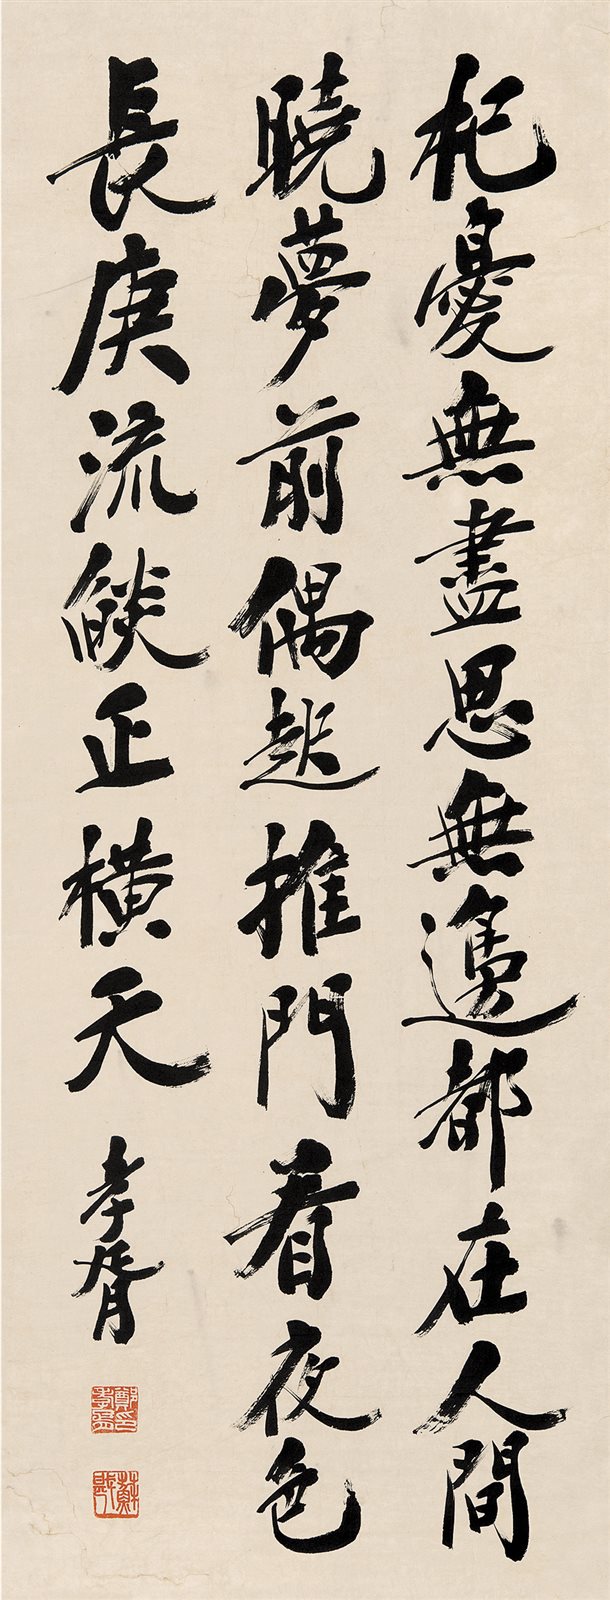 杞憂無盡思無邊都在人間
曉夢前偶起推門看夜色
長庚流燄正橫天
孝胥
鄭印孝胥
蘇戡